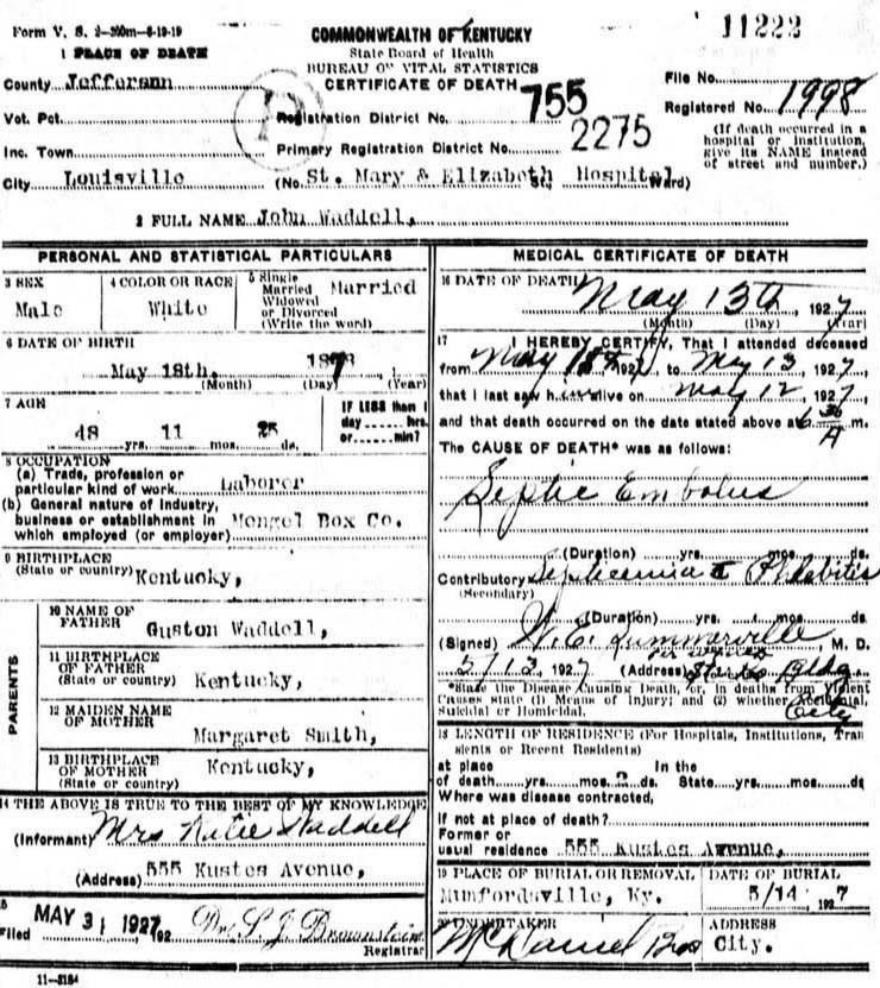 Form V. S. 2-200m-8-19-19
COMMONWEALTH OF KENTUCKY
11222
1 PLACE OF DEATH
State Board of Health
BUREAU OF VITAL STATISTICS
County Jefferson
CERTIFICATE OF DEATH
File No.
Vot. Pct.
Registration District No. 755
Registered No. 1998
Inc. Town
Primary Registration District No. 2275
(If death occurred in a hospital or institution, give its NAME instead of street and number.)
City Louisville
(No. St. Mary & Elizabeth St., Hospital Ward)
2 FULL NAME John Waddell,
PERSONAL AND STATISTICAL PARTICULARS
3 SEX
Male
4 COLOR OR RACE
White
5 Single
Married
Widowed
or Divorced
(Write the word)
Married
6 DATE OF BIRTH
May 18th.
(Month) (Day) (Year)
7 AGE
48 yrs. 11 mos. 25 ds.
IF LESS than 1
day hrs.
or min?
8 OCCUPATION
(a) Trade, profession or
particular kind of work Laborer
(b) General nature of Industry,
business or establishment in Mengel Box Co.
which employed (or employer)
9 BIRTHPLACE
(State or country) Kentucky,
PARENTS
10 NAME OF
FATHER
Guston Waddell,
11 BIRTHPLACE
OF FATHER
(State or country) Kentucky,
12 MAIDEN NAME
OF MOTHER
Margaret Smith,
13 BIRTHPLACE
OF MOTHER
(State or country) Kentucky,
14 THE ABOVE IS TRUE TO THE BEST OF MY KNOWLEDGE
(Informant) Mrs Katie Waddell
(Address) 555 Kustes Avenue,
15
Filed MAY 31 1927 192
Dr. L. J. Brownstein
Registrar
11-3184
MEDICAL CERTIFICATE OF DEATH
16 DATE OF DEATH
May 13th, 1927
(Month) (Day) (Year)
17 I HEREBY CERTIFY, That I attended deceased
from May 192, to May 13, 1927,
that I last saw him alive on May 12, 1927,
and that death occurred on the date stated above at 6 30 A m.
The CAUSE OF DEATH* was as follows:
Septic Embolus
(Duration) yrs. mos. ds.
Contributory Septicemia Phlebitis
(Secondary)
(Duration) yrs. mos. ds
(Signed) W. E. Summerville, M. D.
5/13, 1927 (Address) Starks Bldg
City
*State the Disease Causing Death, or, in deaths from Violent
Causes state (1) Means of Injury; and (2) whether Accidental,
Suicidal or Homicidal.
18 LENGTH OF RESIDENCE (For Hospitals, Institutions, Tran
sients or Recent Residents)
at place In the
of death yrs. mos. 2 ds. State yrs. mos. ds
Where was disease contracted,
If not at place of death?
Former or
usual residence 555 Kustes Avenue,
19 PLACE OF BURIAL OR REMOVAL
Munfordsville, Ky.
DATE OF BURIAL
5/14 1927
20 UNDERTAKER
McDaniel Bros
ADDRESS
City.